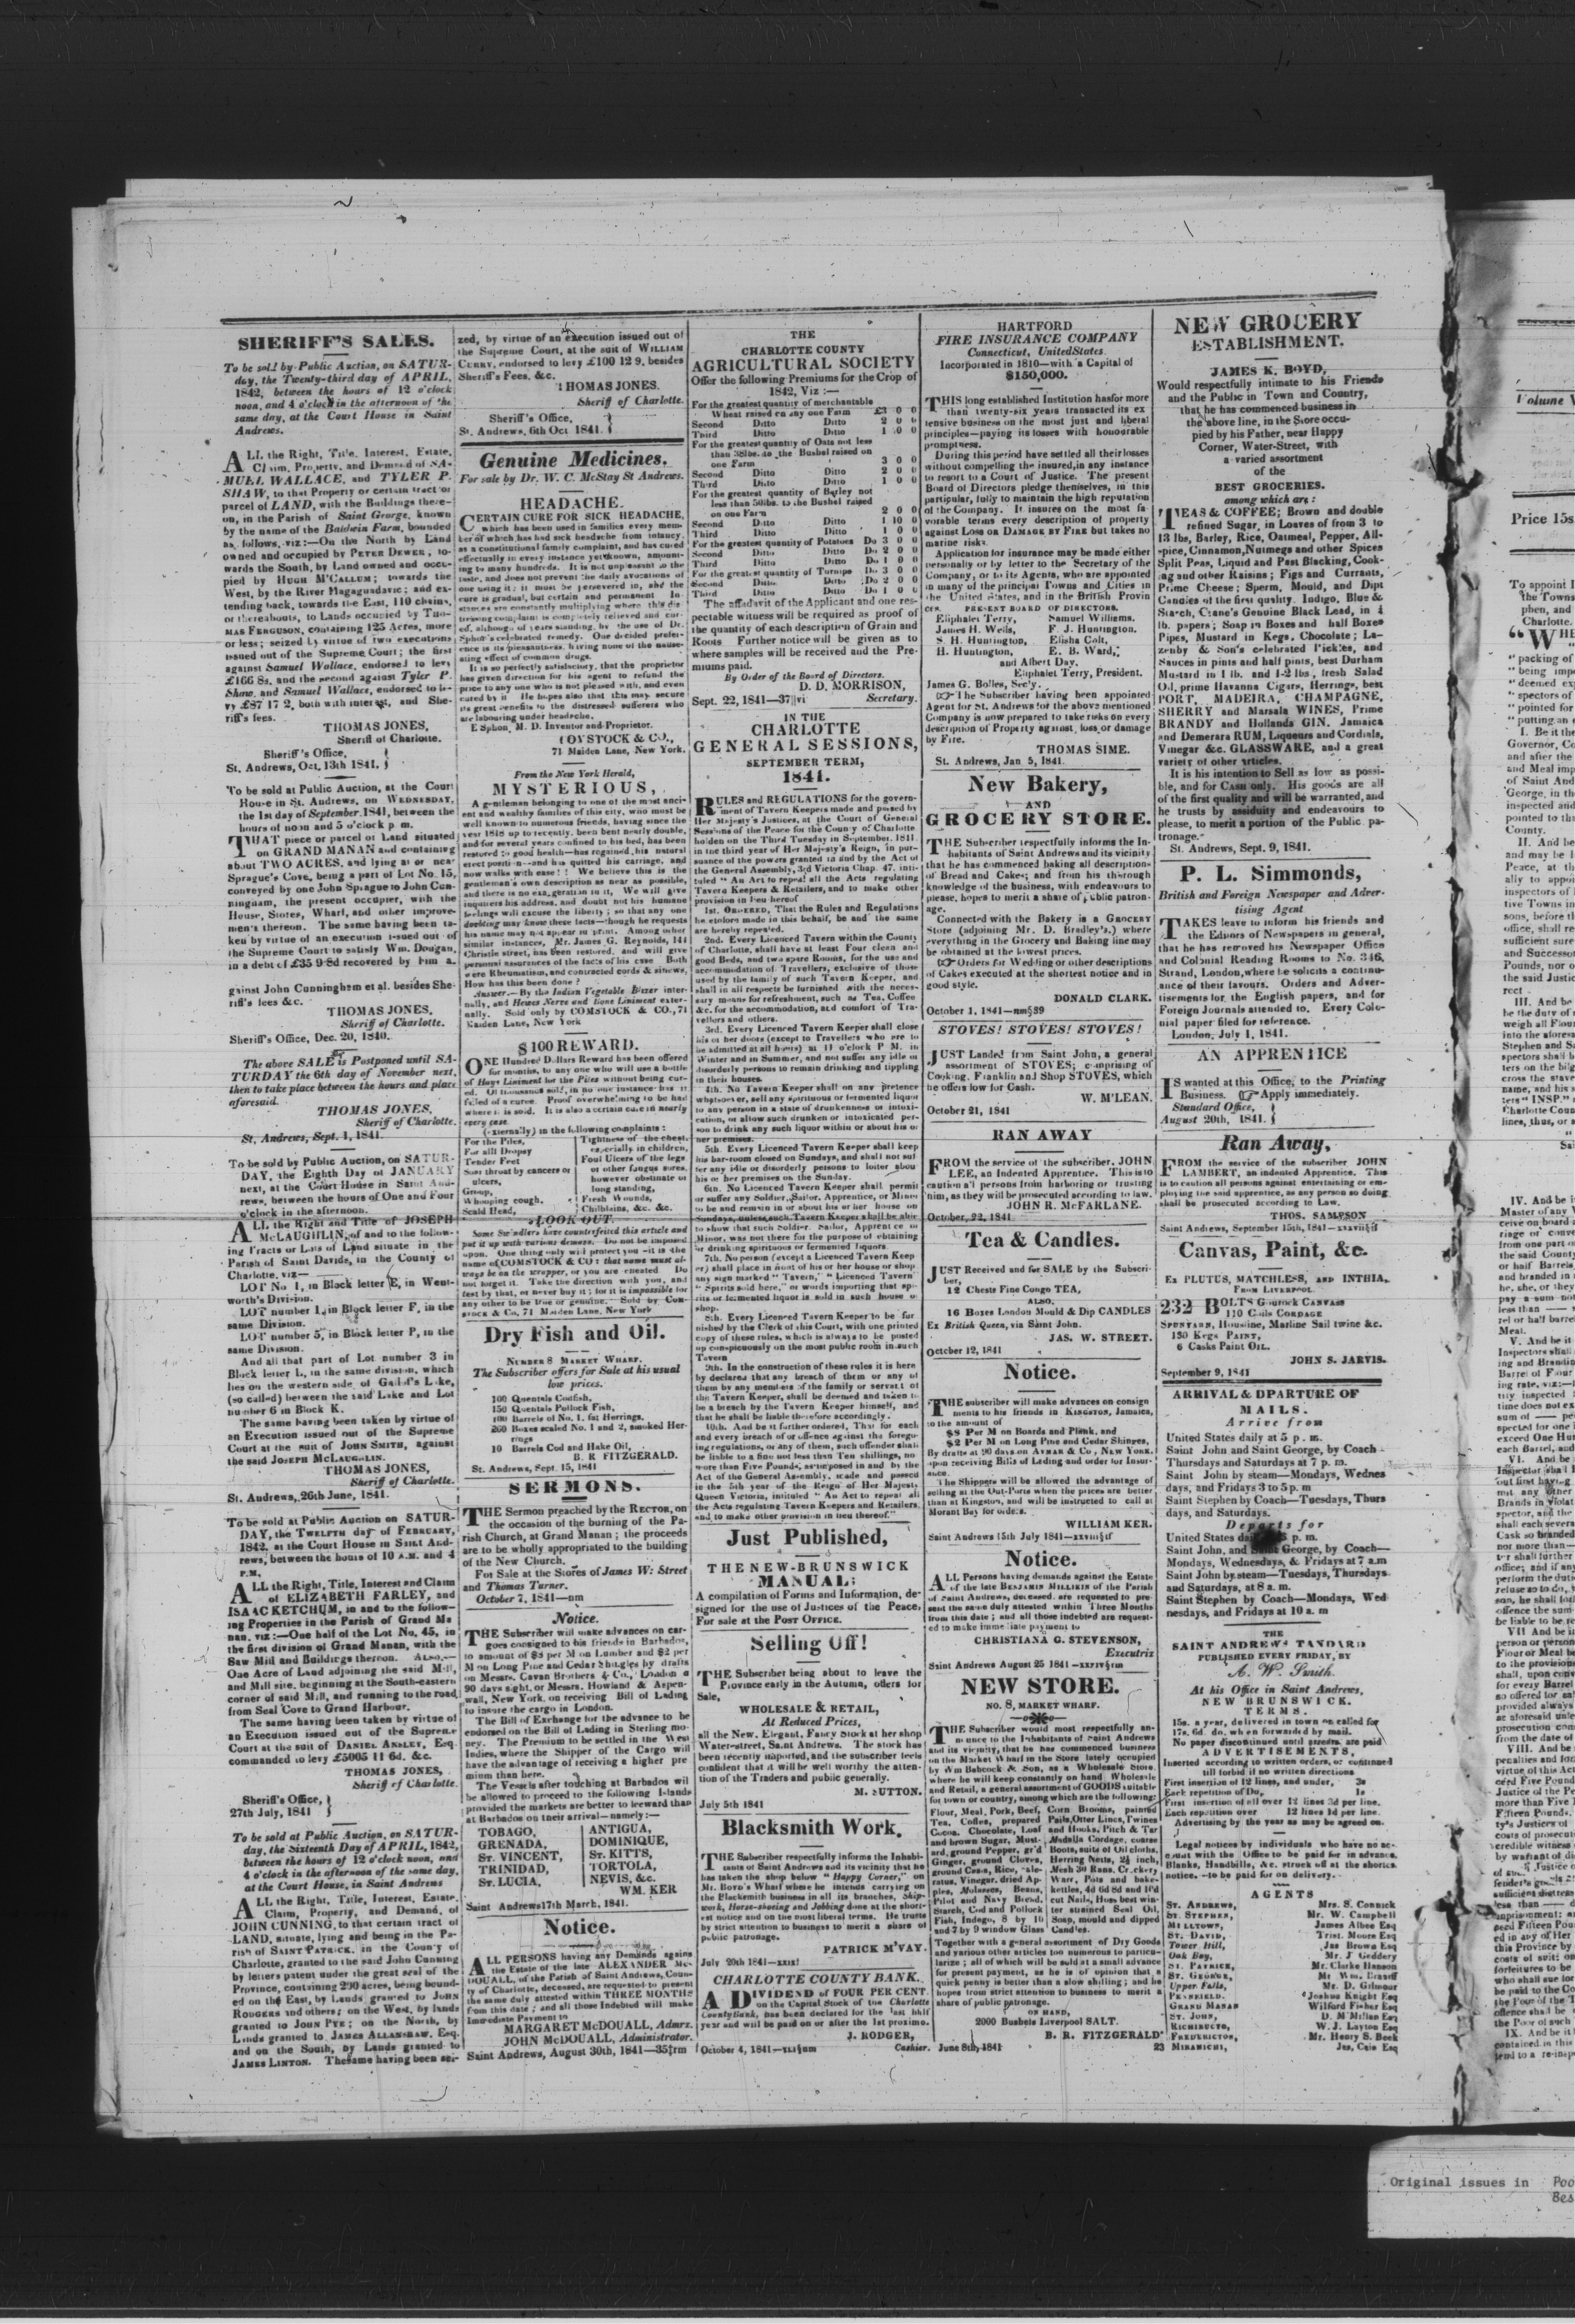 SHERIFF'S SALES.
To be sold by Public Auction, on SATUR-
day, the Twenty-third day of APRIL,
1842, between the hours of 12 o'clock
noon, and 4 o'clock in the afternoon of the
same day, at the Court House in Saint
Andrews.
ALL the Right, Title, Interest, Estate,
Claim, Property, and Demand of SA-
MUEL WALLACE, and TYLER P.
SHAW, to that Property or certain tract or
parcel of LAND, with the Buildings there-
on, in the Parish of Saint George, known
by the name of the Baldwin Farm, bounded
as follows, viz:—On the North by Land
owned and occupied by PETER DEWER, to-
wards the South, by Land owned and occu-
pied by HUGH M'CALLUM; towards the
West, by the River Magaguadavic; and ex-
tending back, towards the East, 110 chains,
or thereabouts, to Lands occupied by THO-
MAS FERGUSON, containing 125 Acres, more
or less; seized by virtue of two executions
issued out of the Supreme Court; the first
against Samuel Wallace, endorsed to levy
£166 8s, and the second against Tyler P.
Shaw, and Samuel Wallace, endorsed to le-
vy £87 17 2, both with interest, and She-
riff's fees.
THOMAS JONES,
Sheriff of Charlotte.
Sheriff's Office,
St. Andrews, Oct. 13th 1841.
To be sold at Public Auction, at the Court
House in St. Andrews, on WEDNESDAY,
the 1st day of September, 1841, between the
hours of noon and 5 o'clock p m.
THAT piece or parcel of Land situated
on GRAND MANAN and containing
about TWO ACRES, and lying at or near
Sprague's Cove, being a part of Lot No. 15,
conveyed by one John Sprague to John Cun-
ningham, the present occupier, with the
House, Stores, Wharf, and other improve-
ments thereon. The same having been ta-
ken by virtue of an execution issued out of
the Supreme Court to satisfy Wm. Dougan,
in a debt of £35 9 8d recovered by him a-
gainst John Cunningham et al. besides She-
riff's fees &c.
THOMAS JONES,
Sheriff of Charlotte.
Sheriff's Office, Dec. 20, 1840.
The above SALE is Postponed until SA-
TURDAY the 6th day of November next,
then to take place between the hours and place
aforesaid.
THOMAS JONES,
Sheriff of Charlotte.
St. Andrews, Sept. 1, 1841.
To be sold by Public Auction, on SATUR-
DAY, the Eighth Day of JANUARY
next, at the Court House in Saint And-
rews, between the hours of One and Four
o'clock in the afternoon.
ALL the Right and Title of JOSEPH
McLAUGHLIN, of and to the follow-
ing Tracts or Lots of Land situate in the
Parish of Saint Davids, in the County of
Charlotte, viz—
LOT No 1, in Block letter E, in Went-
worth's Division.
LOT number 1, in Block letter F, in the
same Division.
LOT number 5, in Block letter P, in the
same Division.
And all that part of Lot number 3 in
Block letter L, in the same division, which
lies on the western side of Lake,
(so called) between the said Lake and Lot
number 6 in Block K.
The same having been taken by virtue of
an Execution issued out of the Supreme
Court at the suit of JOHN SMITH, against
the said JOSEPH McLAUGHLIN.
THOMAS JONES,
Sheriff of Charlotte.
St. Andrews, 26th June, 1841.
To be sold at Public Auction on SATUR-
DAY, the TWELFTH day of FEBRUARY,
1842, at the Court House in Saint And-
rews, between the hours of 10 A.M. and 4
P.M,
ALL the Right, Title, Interest and Claim
of ELIZABETH FARLEY, and
ISAAC KETCHUM, in and to the follow-
ing Properties in the Parish of Grand Ma
nan, viz:—One half of the Lot No. 45, in
the first division of Grand Manan, with the
Saw Mill and Buildings thereon. ALSO,—
One Acre of Land adjoining the said Mill,
and Mill site, beginning at the South-eastern
corner of said Mill, and running to the road
from Seal Cove to Grand Harbour.
The same having been taken by virtue of
an Execution issued out of the Supreme
Court at the suit of DANIEL ANSLEY, Esq.
commanded to levy £5005 11 6d. &c.
THOMAS JONES,
Sheriff of Charlotte.
Sheriff's Office,
27th July, 1841
To be sold at Public Auction, on SATUR-
day, the Sixteenth Day of APRIL, 1842,
between the hours of 12 o'clock noon, and
4 o'clock in the afternoon of the same day,
at the Court House, in Saint Andrews
ALL the Right, Title, Interest, Estate,
Claim, Property, and Demand, of
JOHN CUNNING, to that certain tract of
LAND, situate, lying and being in the Pa-
rish of SAINT PATRICK, in the County of
Charlotte, granted to the said John Cunning
by letters patent under the great seal of the
Province, containing 290 acres, being bound-
ed on the East, by Lands granted to JOHN
ROGERS and others; on the West, by lands
granted to JOHN PYE; on the North, by
Lands granted to JAMES ALLANSHAW, Esq.
and on the South, by Lands granted to
JAMES LINTON. The same having been sei-
zed, by virtue of an execution issued out of
the Supreme Court, at the suit of WILLIAM
CURRY, endorsed to levy £100 12 9, besides
Sheriff's Fees, &c.
THOMAS JONES.
Sheriff of Charlotte.
Sheriff's Office,
St. Andrews, 6th Oct 1841.
Genuine Medicines,
For sale by Dr. W. C. McStay St Andrews.
HEADACHE.
CERTAIN CURE FOR SICK HEADACHE,
which has been used in families every mem-
ber of which has had sick headache from infancy,
as a constitutional family complaint, and has cured
effectually in every instance yet known, amount-
ing to many hundreds. It is not unpleasant to the
taste, and does not prevent the daily avocations of
one using it; it must be persevered in, and the
cure is gradual, but certain and permanent In-
stances are constantly multiplying where this dis-
tressing complaint is completely relieved and cur-
ed, although of years standing, by the use of Dr.
Sphon's celebrated remedy. One decided prefer-
ence is its pleasantness, having none of the nause-
ating effect of common drugs.
It is so perfectly satisfactory, that the proprietor
has given direction for his agent to refund the
price to any one who is not pleased with, and even
cured by it He hopes also that this may secure
its great benefits to the distressed sufferers who
are labouring under headache.
E Sphon, M. D. Inventor and Proprietor.
COMSTOCK & CO.,
71 Maiden Lane, New York.
From the New York Herald,
MYSTERIOUS,
A gentleman belonging to one of the most anci-
ent and wealthy families of this city, who must be
well known to numerous friends, having since the
year 1818 up to recently, been bent nearly double,
and for several years confined to his bed, has been
restored to good health—has regained his natural
erect position—and has quitted his carriage, and
now walks with ease!! We believe this is the
gentleman's own description as near as possible,
and there is no exaggeration in it. We will give
inquirers his address, and doubt not his humane
feelings will excuse the liberty; so that any one
doubting may know these facts—though he requests
his name may not appear in print. Among other
similar instances, Mr. James G. Reynolds, 144
Christie street, has been restored, and will give
personal assurances of the facts of his case Both
were Rheumatism, and contracted cords & sinews.
How has this been done?
Answer.—By the Indian Vegetable Elixer inter-
nally, and Hewes Nerve and Bone Liniment exter-
nally. Sold only by COMSTOCK & CO., 71
Maiden Lane, New York
$100 REWARD.
ONE Hundred Dollars Reward has been offered
for months, to any one who will use a bottle
of Hays Liniment for the Piles without being cur-
ed. Of thousands sold, in no one instance has it
failed of a cure. Proof overwhelming to be had
where it is sold. It is also a certain cure in nearly
every case.
(externally) in the following complaints:
For the Piles,
For all Dropsy
Tender Feet
Sore throat by cancers or
ulcers,
Group,
Whooping cough.
Scald Head,
Tightness of the chest,
especially in children,
Foul Ulcers of the legs
or other fungus sores,
however obstinate or
long standing,
Fresh Wounds,
Chilblains, &c. &c.
LOOK OUT
Some Swindlers have counterfeited this article and
put it up with various devices. Do not be imposed
upon. One thing only will protect you—it is the
name of COMSTOCK & CO: that name must al-
ways be on the wrapper, or you are cheated Do
not forget it. Take the direction with you, and
test by that, or never buy it; for it is impossible for
any other to be true or genuine. Sold by Com-
stock & Co, 71 Maiden Lane, New York
Dry Fish and Oil.
NUMBER 8 MARKET WHARF.
The Subscriber offers for Sale at his usual
low prices.
100 Quentals Codfish,
150 Quentals Pollock Fish,
100 Barrels of No. 1. fat Herrings,
200 Boxes scaled No. 1 and 2, smoked Her-
rings
10 Barrels Cod and Hake Oil,
B. R FITZGERALD.
St. Andrews, Sept. 15, 1841
SERMONS.
THE Sermon preached by the RECTOR, on
the occasion of the burning of the Pa-
rish Church, at Grand Manan; the proceeds
are to be wholly appropriated to the building
of the New Church.
For Sale at the Stores of James W. Street
and Thomas Turner.
October 7, 1841—nm
Notice.
THE Subscriber will make advances on car-
goes consigned to his friends in Barbados,
to amount of $8 per M on Lumber and $2 per
M on Long Pine and Cedar Shingles by drafts
on Messrs. Cavan Brothers & Co., London a
90 days sight, or Messrs. Howland & Aspen-
wall, New York, on receiving Bill of Lading
to insure the cargo in London.
The Bill of Exchange for the advance to be
endorsed on the Bill of Lading in Sterling mo-
ney. The Premium to be settled in the West
Indies, where the Shipper of the Cargo will
have the advantage of receiving a higher pre
mium than here.
The Vessels after touching at Barbados wil
be allowed to proceed to the following Islands
provided the markets are better to leeward than
at Barbados on their arrival—namely:—
TOBAGO,
GRENADA,
ST. VINCENT,
TRINIDAD,
ST. LUCIA,
ANTIGUA,
DOMINIQUE,
ST. KITTS,
TORTOLA,
NEVIS, &c.
WM. KER
Saint Andrews 17th March, 1841.
Notice.
ALL PERSONS having any Demands agains
the Estate of the late ALEXANDER Mc-
DOUALL, of the Parish of Saint Andrews, Coun-
ty of Charlotte, deceased, are requested to present
the same duly attested within THREE MONTHS
from this date; and all those Indebted will make
Immediate Payment to
MARGARET McDOUALL, Admrx.
JOHN McDOUALL, Administrator.
Saint Andrews, August 30th, 1841—35
THE
CHARLOTTE COUNTY
AGRICULTURAL SOCIETY
Offer the following Premiums for the Crop of
1842, Viz:—
For the greatest quantity of merchantable
Wheat raised on any one Farm £3 0 0
Second Ditto Ditto 2 0 0
Third Ditto Ditto 1 0 0
For the greatest quantity of Oats not less
than 38lbs. to the Bushel raised on
one Farm 3 0 0
Second Ditto Ditto 2 0 0
Third Ditto Ditto 1 0 0
For the greatest quantity of Barley not
less than 50lbs. to the Bushel raised
on one Farm 2 0 0
Second Ditto Ditto 1 10 0
Third Ditto Ditto 1 0 0
For the greatest quantity of Potatoes Do 3 0 0
Second Ditto Do 2 0 0
Third Ditto Do 1 0 0
For the greatest quantity of Turnips Do 3 0 0
Second Ditto Do 2 0 0
Third Ditto Do 1 0 0
The affadavit of the Applicant and one res-
pectable witness will be required as proof of
the quantity of each description of Grain and
Roots Further notice will be given as to
where samples will be received and the Pre-
miums paid.
By Order of the Board of Directors.
D. D. MORRISON,
Sept. 22, 1841—37||vi Secretary.
IN THE
CHARLOTTE
GENERAL SESSIONS,
SEPTEMBER TERM,
1841.
RULES and REGULATIONS for the govern-
ment of Tavern Keepers made and passed by
Her Majesty's Justices, at the Court of General
Sessions of the Peace for the County of Charlotte
holden on the Third Tuesday in September, 1841.
in the third year of Her Majesty's Reign, in pur-
suance of the powers granted in and by the Act of
the General Assembly, 3rd Victoria Chap. 47, inti-
tuled "An Act to repeal all the Acts regulating
Tavern Keepers & Retailers, and to make other
provision in lieu hereof
1st. ORDERED, That the Rules and Regulations
heretofore made in this behalf, be and the same
are hereby repealed.
2nd. Every Licenced Tavern within the County
of Charlotte, shall have at least Four clean and
good Beds, and two spare Rooms, for the use and
accommodation of Travellers, exclusive of those
used by the family of such Tavern Keeper, and
shall in all respects be furnished with the neces-
sary means for refreshment, such as Tea, Coffee
&c. for the accommodation, and comfort of Tra-
vellers and others.
3rd. Every Licenced Tavern Keeper shall close
his or her doors (except to Travellers who are to
be admitted at all hours) at 11 o'clock P M. in
Winter and in Summer, and not suffer any idle or
disorderly persons to remain drinking and tippling
in their houses.
4th. No Tavern Keeper shall on any pretence
whatsoever, sell any spirituous or fermented liquor
to any person in a state of drunkenness or intoxi-
cation, or allow such drunken or intoxicated per-
son to drink any such liquor within or about his or
her premises.
5th. Every Licenced Tavern Keeper shall keep
his bar-room closed on Sundays, and shall not suf
fer any idle or disorderly persons to loiter abou
his or her premises on the Sunday.
6th. No Licenced Tavern Keeper shall permit
or suffer any Soldier, Sailor, Apprentice, or Minor
to be and remain in or about his or her house on
Sundays, unless such Tavern Keeper shall be able
to show that such Soldier, Sailor, Apprentice or
Minor, was not there for the purpose of obtaining
or drinking spirituous or fermented liquors.
7th. No person (except a Licenced Tavern Keep
er) shall place in front of his or her house or shop
any sign marked "Tavern," "Licenced Tavern"
"Spirits sold here," or words importing that spi-
rits or fermented liquor is sold in such house o
shop.
8th. Every Licenced Tavern Keeper to be fur
nished by the Clerk of this Court, with one printed
copy of these rules, which is always to be posted
up conspicuously on the most public room in such
Tavern
9th. In the construction of these rules it is here
by declared that any breach of them or any of
them by any members of the family or servant of
the Tavern Keeper, shall be deemed and taken to
be a breach by the Tavern Keeper himself, and
that he shall be liable therefore accordingly.
10th. And be it further ordered, That for each
and every breach of or offence against the forego-
ing regulations, or any of them, such offender shall
be liable to a fine not less than Ten shillings, no
more than Five Pounds, as imposed in and by the
Act of the General Assembly, made and passed
in the 5th year of the Reign of Her Majesty
Queen Victoria, intituled "An Act to repeal all
the Acts regulating Tavern Keepers and Retailers,
and to make other provision in lieu thereof."
Just Published,
THE NEW-BRUNSWICK
MANUAL:
A compilation of Forms and Information, de-
signed for the use of Justices of the Peace,
For sale at the POST OFFICE.
Selling Off!
THE Subscriber being about to leave the
Province early in the Autumn, offers for
Sale,
WHOLESALE & RETAIL,
At Reduced Prices,
all the New, Elegant, Fancy Stock at her shop
Water-street, Saint Andrews. The stock has
been recently imported, and the subscriber feels
confident that it will be well worthy the atten-
tion of the Traders and public generally.
M. SUTTON.
July 5th 1841
Blacksmith Work.
THE Subscriber respectfully informs the Inhabi-
tants of Saint Andrews and its vicinity that he
has taken the shop below "Happy Corner," on
Mr. Boyd's Wharf where he intends carrying on
the Blacksmith business in all its branches, Ship-
work, Horse-shoeing and Jobbing done at the short-
est notice and on the most liberal terms. He trusts
by strict attention to business to merit a share of
public patronage.
PATRICK M'VAY.
July 20th 1841—xxix!
CHARLOTTE COUNTY BANK.
A DIVIDEND of FOUR PER CENT.
on the Capital Stock of the Charlotte
County Bank, has been declared for the last half
year and will be paid on or after the 1st proximo.
J. RODGER,
October 4, 1841—nm Cashier.
HARTFORD
FIRE INSURANCE COMPANY
Connecticut, United States
Incorporated in 1810—with a Capital of
$150,000.
THIS long established Institution has for more
than twenty-six years transacted its ex
tensive business on the most just and liberal
principles—paying its losses with honourable
promptness.
During this period have settled all their losses
without compelling the insured, in any instance
to resort to a Court of Justice. The present
Board of Directors pledge themselves, in this
particular, fully to maintain the high reputation
of the Company. It insures on the most fa-
vorable terms every description of property
against LOSS OR DAMAGE BY FIRE but takes no
marine risks.
Application for insurance may be made either
personally or by letter to the Secretary of the
Company, or to its Agents, who are appointed
in many of the principal Towns and Cities in
the United States, and in the British Provin
ces.
PRESENT BOARD OF DIRECTORS.
Eliphalet Terry, Samuel Williams.
James H. Wells, F. J. Huntington.
S. H. Huntington, Elisha Colt,
H. Huntington, E. B. Ward,
and Albert Day.
Eliphalet Terry, President.
James G. Bolles, Sec'y.
☞The Subscriber having been appointed
Agent for St. Andrews for the above mentioned
Company is now prepared to take risks on every
description of Property against loss or damage
by Fire.
THOMAS SIME.
St. Andrews, Jan 5, 1841.
New Bakery,
AND
GROCERY STORE.
THE Subscriber respectfully informs the In-
habitants of Saint Andrews and its vicinity
that he has commenced baking all description-
of Bread and Cakes; and from his thorough
knowledge of the business, with endeavours to
please, hopes to merit a share of public patron-
age.
Connected with the Bakery is a GROCERY
Store (adjoining Mr. D. Bradley's.) where
everything in the Grocery and Baking line may
be obtained at the lowest prices.
☞Orders for Wedding or other descriptions
of Cakes executed at the shortest notice and in
good style.
DONALD CLARK.
October 1, 1841—nm§39
STOVES! STOVES! STOVES!
JUST Landed from Saint John, a general
assortment of STOVES; comprising of
Cooking, Franklin and Shop STOVES, which
he offers low for Cash.
W. M'LEAN.
October 21, 1841
RAN AWAY
FROM the service of the subscriber, JOHN
LEE, an Indented Apprentice. This is to
caution all persons from harboring or trusting
him, as they will be prosecuted according to law.
JOHN R. McFARLANE.
October, 22, 1841
Tea & Candles.
JUST Received and for SALE by the Subscri-
ber,
12 Chests Fine Congo TEA,
ALSO,
16 Boxes London Mould & Dip CANDLES
Ex British Queen, via Saint John.
JAS. W. STREET.
October 12, 1841
Notice.
THE subscriber will make advances on consign
ments to his friends in KINGSTON, Jamaica,
to the amount of
$8 Per M on Boards and Plank, and
$2 Per M on Long Pine and Cedar Shinges,
By drafts at 90 days on AYMAR & Co, NEW YORK.
upon receiving Bills of Lading and order for Insur-
ance.
The Shippers will be allowed the advantage of
selling at the Out-Ports when the prices are better
than at Kingston, and will be instructed to call at
Morant Bay for orders.
WILLIAM KER.
Saint Andrews 15th July 1841—xxviii§tf
Notice.
ALL Persons having demands against the Estate
of the late BENJAMIN MILLIKEN of the Parish
of Saint Andrews, deceased, are requested to pre-
sent the same duly attested within Three Months
from this date; and all those indebted are request-
ed to make immediate payment to
CHRISTIANA G. STEVENSON,
Executrix
Saint Andrews August 25 1841—xxxiv§rm
NEW STORE.
NO. 8, MARKET WHARF.
THE Subscriber would most respectfully an-
nounce to the Inhabitants of Saint Andrews
and its vicinity, that he has commenced business
on the Market Wharf in the Store lately occupied
by Wm Babcock & Son, as a Wholesale Store
where he will keep constantly on hand Wholesale
and Retail, a general assortment of GOODS suitable
for town or country, among which are the following:
Flour, Meal, Pork, Beef,
Tea, Coffee, prepared
Cocoa, Chocolate, Loaf
and brown Sugar, Must-
ard, ground Pepper, gr'd
Ginger, ground Cloves,
ground Cassia, Rice, Sale-
ratus, Vinegar, dried Ap-
ples, Molasses, Beans,
Pilot and Navy Bread,
Starch, Cod and Pollock
Fish, Indego, 8 by 10
and 7 by 9 window Glass
Corn Brooms, painted
Pails, Otter Lines, Twines
and Hooks, Pitch & Tar
Manilla Cordage, coarse
Boots, suits of Oil cloths,
Herring Netts, 2½ inch,
Mesh 30 Rans, Crockery
Ware, Pots and bake-
kettles, 4d 6d 8d and 10'd
cut Nails, Hops best win-
ter strained Seal Oil,
Soap, mould and dipped
Candles.
Together with a general assortment of Dry Goods
and various other articles too numerous to particu-
larize; all of which will be sold at a small advance
for present payment, as he is of opinion that a
quick penny is better than a slow shilling; and he
hopes from strict attention to business to merit a
share of public patronage.
ON HAND,
2000 Bushels Liverpool SALT.
B. R. FITZGERALD
June 8th, 1841 23
NEW GROCERY
ESTABLISHMENT.
JAMES K. BOYD,
Would respectfully intimate to his Friends
and the Public in Town and Country,
that he has commenced business in
the above line, in the Store occu-
pied by his Father, near Happy
Corner, Water-Street, with
a varied assortment
of the
BEST GROCERIES.
among which are:
TEAS & COFFEE; Brown and double
refined Sugar, in Loaves of from 3 to
13 lbs, Barley, Rice, Oatmeal, Pepper, All-
spice, Cinnamon, Nutmegs and other Spices
Split Peas, Liquid and Past Blacking, Cook-
ing and other Raisins; Figs and Currants,
Prime Cheese; Sperm, Mould, and Dipt
Candles of the first quality. Indigo, Blue &
Starch, Crane's Genuine Black Lead, in ¼
lb. papers; Soap in Boxes and half Boxes
Pipes, Mustard in Kegs, Chocolate; La-
zenby & Son's celebrated Pickles, and
Sauces in pints and half pints, best Durham
Mustard in 1 lb. and 1-2 lbs, fresh Salad
Oil, prime Havanna Cigars, Herrings, best
PORT, MADEIRA, CHAMPAGNE,
SHERRY and Marsala WINES, Prime
BRANDY and Hollands GIN. Jamaica
and Demerara RUM, Liqueurs and Cordials,
Vinegar &c. GLASSWARE, and a great
variety of other articles.
It is his intention to Sell as low as possi-
ble, and for CASH only. His goods are all
of the first quality and will be warranted, and
he trusts by assiduity and endeavours to
please, to merit a portion of the Public pa-
tronage.
St. Andrews, Sept. 9, 1841.
P. L. Simmonds,
British and Foreign Newspaper and Adver-
tising Agent
TAKES leave to inform his friends and
the Editors of Newspapers in general,
that he has removed his Newspaper Office
and Colonial Reading Rooms to No. 346,
Strand, London, where he solicits a continu-
ance of their favours. Orders and Adver-
tisements for the English papers, and for
Foreign Journals attended to. Every Colo-
nial paper filed for reference.
London, July 1, 1841.
AN APPRENTICE
IS wanted at this Office, to the Printing
Business. ☞Apply immediately.
Standard Office,
August 20th, 1841.
Ran Away,
FROM the service of the subscriber JOHN
LAMBERT, an indented Apprentice. This
is to caution all persons against entertaining or em-
ploying the said apprentice, as any person so doing
shall be prosecuted according to Law.
THOS. SAMPSON
Saint Andrews, September 15th, 1841—xxxvii§tf
Canvas, Paint, &c.
Ex PLUTUS, MATCHLESS, AND INTHIA,
FROM LIVERPOOL.
232 BOLTS Gourock CANVASS
110 Coils CORDAGE
SPUNYARN, Housline, Marline Sail twine &c.
130 Kegs PAINT,
6 Casks Paint OIL.
JOHN S. JARVIS.
September 9, 1841
ARRIVAL & DPARTURE OF
MAILS.
Arrive from
United States daily at 5 p. m.
Saint John and Saint George, by Coach
Thursdays and Saturdays at 7 p. m.
Saint John by steam—Mondays, Wednes
days, and Fridays 3 to 5 p. m
Saint Stephen by Coach—Tuesdays, Thurs
days, and Saturdays.
Departs for
United States p. m.
Saint John, and George, by Coach—
Mondays, Wednesdays, & Fridays at 7 a.m
Saint John by steam—Tuesdays, Thursdays
and Saturdays, at 8 a. m.
Saint Stephen by Coach—Mondays, Wed
nesdays, and Fridays at 10 a. m
THE
SAINT ANDREWS TANDARD
PUBLISHED EVERY FRIDAY, BY
A. W. Smith.
At his Office in Saint Andrews,
NEW BRUNSWICK.
TERMS.
15s. a year, delivered in town or called for
17s. 6d. do. when forwarded by mail.
No paper discontinued until arrears are paid
ADVERTISEMENTS,
Inserted according to written orders, or continued
till forbid if no written directions
First insertion of 12 lines, and under, 3s
Each repetition of Do, 1s
First insertion of all over 12 lines 3d per line.
Each repetition over 12 lines 1d per line.
Advertising by the year as may be agreed on.
Legal notices by individuals who have no ac-
count with the Office to be paid for in advance.
Blanks, Handbills, &c. struck off at the shortes
notice,—to be paid for on delivery.
AGENTS
ST. ANDREWS, Mrs. S. Connick
ST. STEPHEN, Mr. W. Campbell
MILLTOWN, James Albee Esq
ST. DAVID, Trist. Moore Esq
Tower Hill, Jas Brown Esq
OAK BAY, Mr. J Geddery
ST. PATRICK, Mr. Clarke Hanson
ST. GEORGE, Mr Wm.
Upper Falls, Mr. D. Gilmour
PENNFIELD, Joshua Knight Esq
GRAND MANAN Wilford Fisher Esq
ST. JOHN, D. M'Millan Esq
RICHIBUCTO, W. J. Layton Esq
FREDERICTON, Mr. Henry S. Beek
MIRAMICHI, Jas, Cain Esq
Volume V
Price 15s
To appoint I
the Towns
phen, and
Charlotte.
"WHE
"packing of
"being impo
"deemed ex
"spectors of
"pointed for
"putting an e
I. Be it the
Governor, Co
and after the
and Meal imp
of Saint And
George, in th
inspected and
pointed to th
County.
II. And be
and may be l
Peace, at th
ally to appoi
inspectors of
tive Towns in
soon, before th
office, shall re
sufficient sure
and Successor
Pounds, nor o
the said Justic
rect.
III. And be
be the duty of
weigh all Flour
into the aforesa
Stephen and Sa
spectors shall b
ters on the bilg
cross the stave
name, and his s
ters "INSP." o
Charlotte Coun
lines, thus, or a
Sai
IV. And be i
Master of any V
ceive on board a
riage or conve
from one part o
the said County
or half Barrels
and branded in
he, she, or they
pay a sum not
less than —— s
rel or half barrel
Meal.
V. And be it
Inspectors shall
ing and Brandin
Barrel of Flour
ing rate, viz:—
tity inspected
time does not ex
sum of —— pe
spected for one l
exceed One Hun
each Barrel, and
VI. And be
Inspector shall
out first having
Brands in violat
spector, and the
shall each severa
Cask so branded
nor more than—
office; and if any
perform the duti
refuse so to do,
son, he shall forf
offence the sum
be liable to be re
VII And be it
person or person
Flour or Meal be
to the provision
shall, upon conv
for every Barrel
so offered for sal
provided always
as aforesaid unle
prosecution com
from the date of
VIII. And be
penalties and for
virtue of this Act
Justice of the Pe
more than Five
Fifteen Pounds.
ty's Justices of
costs of prosecut
credible witness
by warrant of di
sufficient distress
less than —— d
imprisonment: an
ceed Fifteen Pou
ed in any of Her
this Province by
costs of suit; on
forfeitures to be
who shall sue for
be paid to the Co
the Poor of the T
offence shall be
the Poor of such
IX. And be it
contained in this
tend to a re-insp
Original issues in Poo
Bes